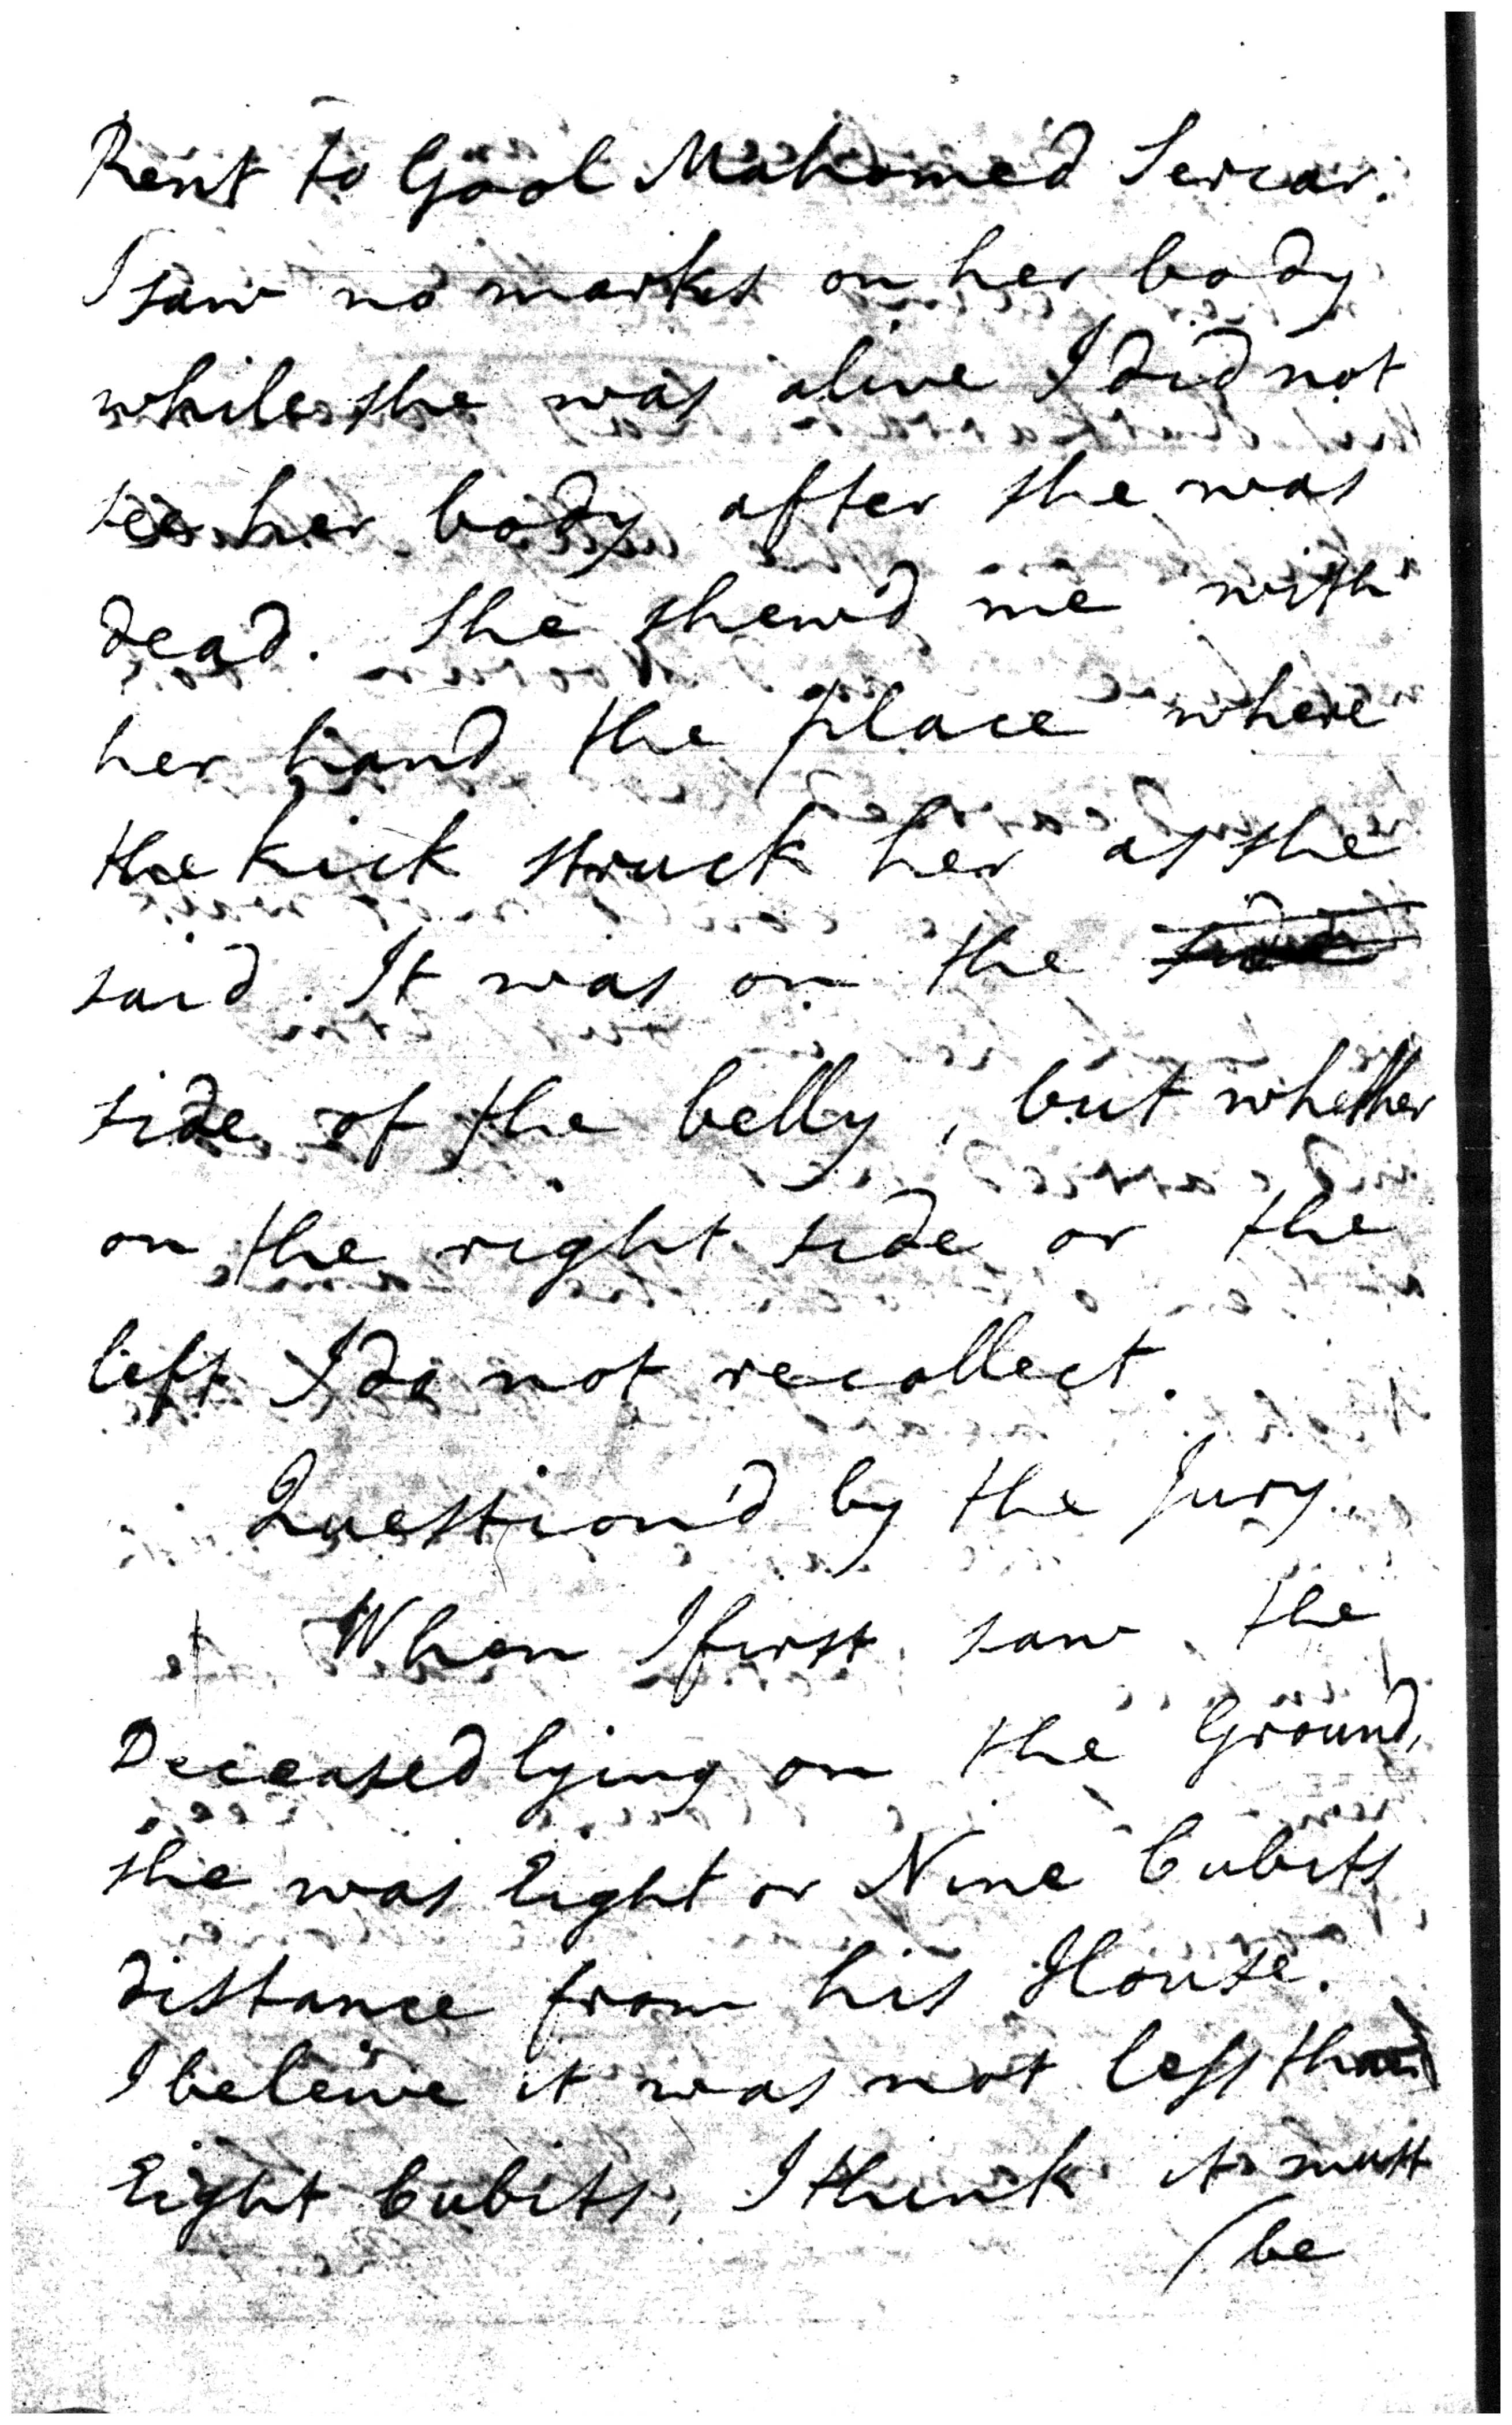 Rent to Gool Mahomed Sercar.
I saw no marks on her body
while she was alive I did not
see her body after she was
dead. She shew'd me with
her hand the place where
the kick struck her as she
said. It was on the
side of the belly, but whether
on the right side or the
left I do not recollect.
Question'd by the Jury.
When I first saw the
Deceased lying on the Ground,
she was Eight or Nine Cubits
distance from his House.
I beleive it was not less than
Eight Cubits, I think it must
(be